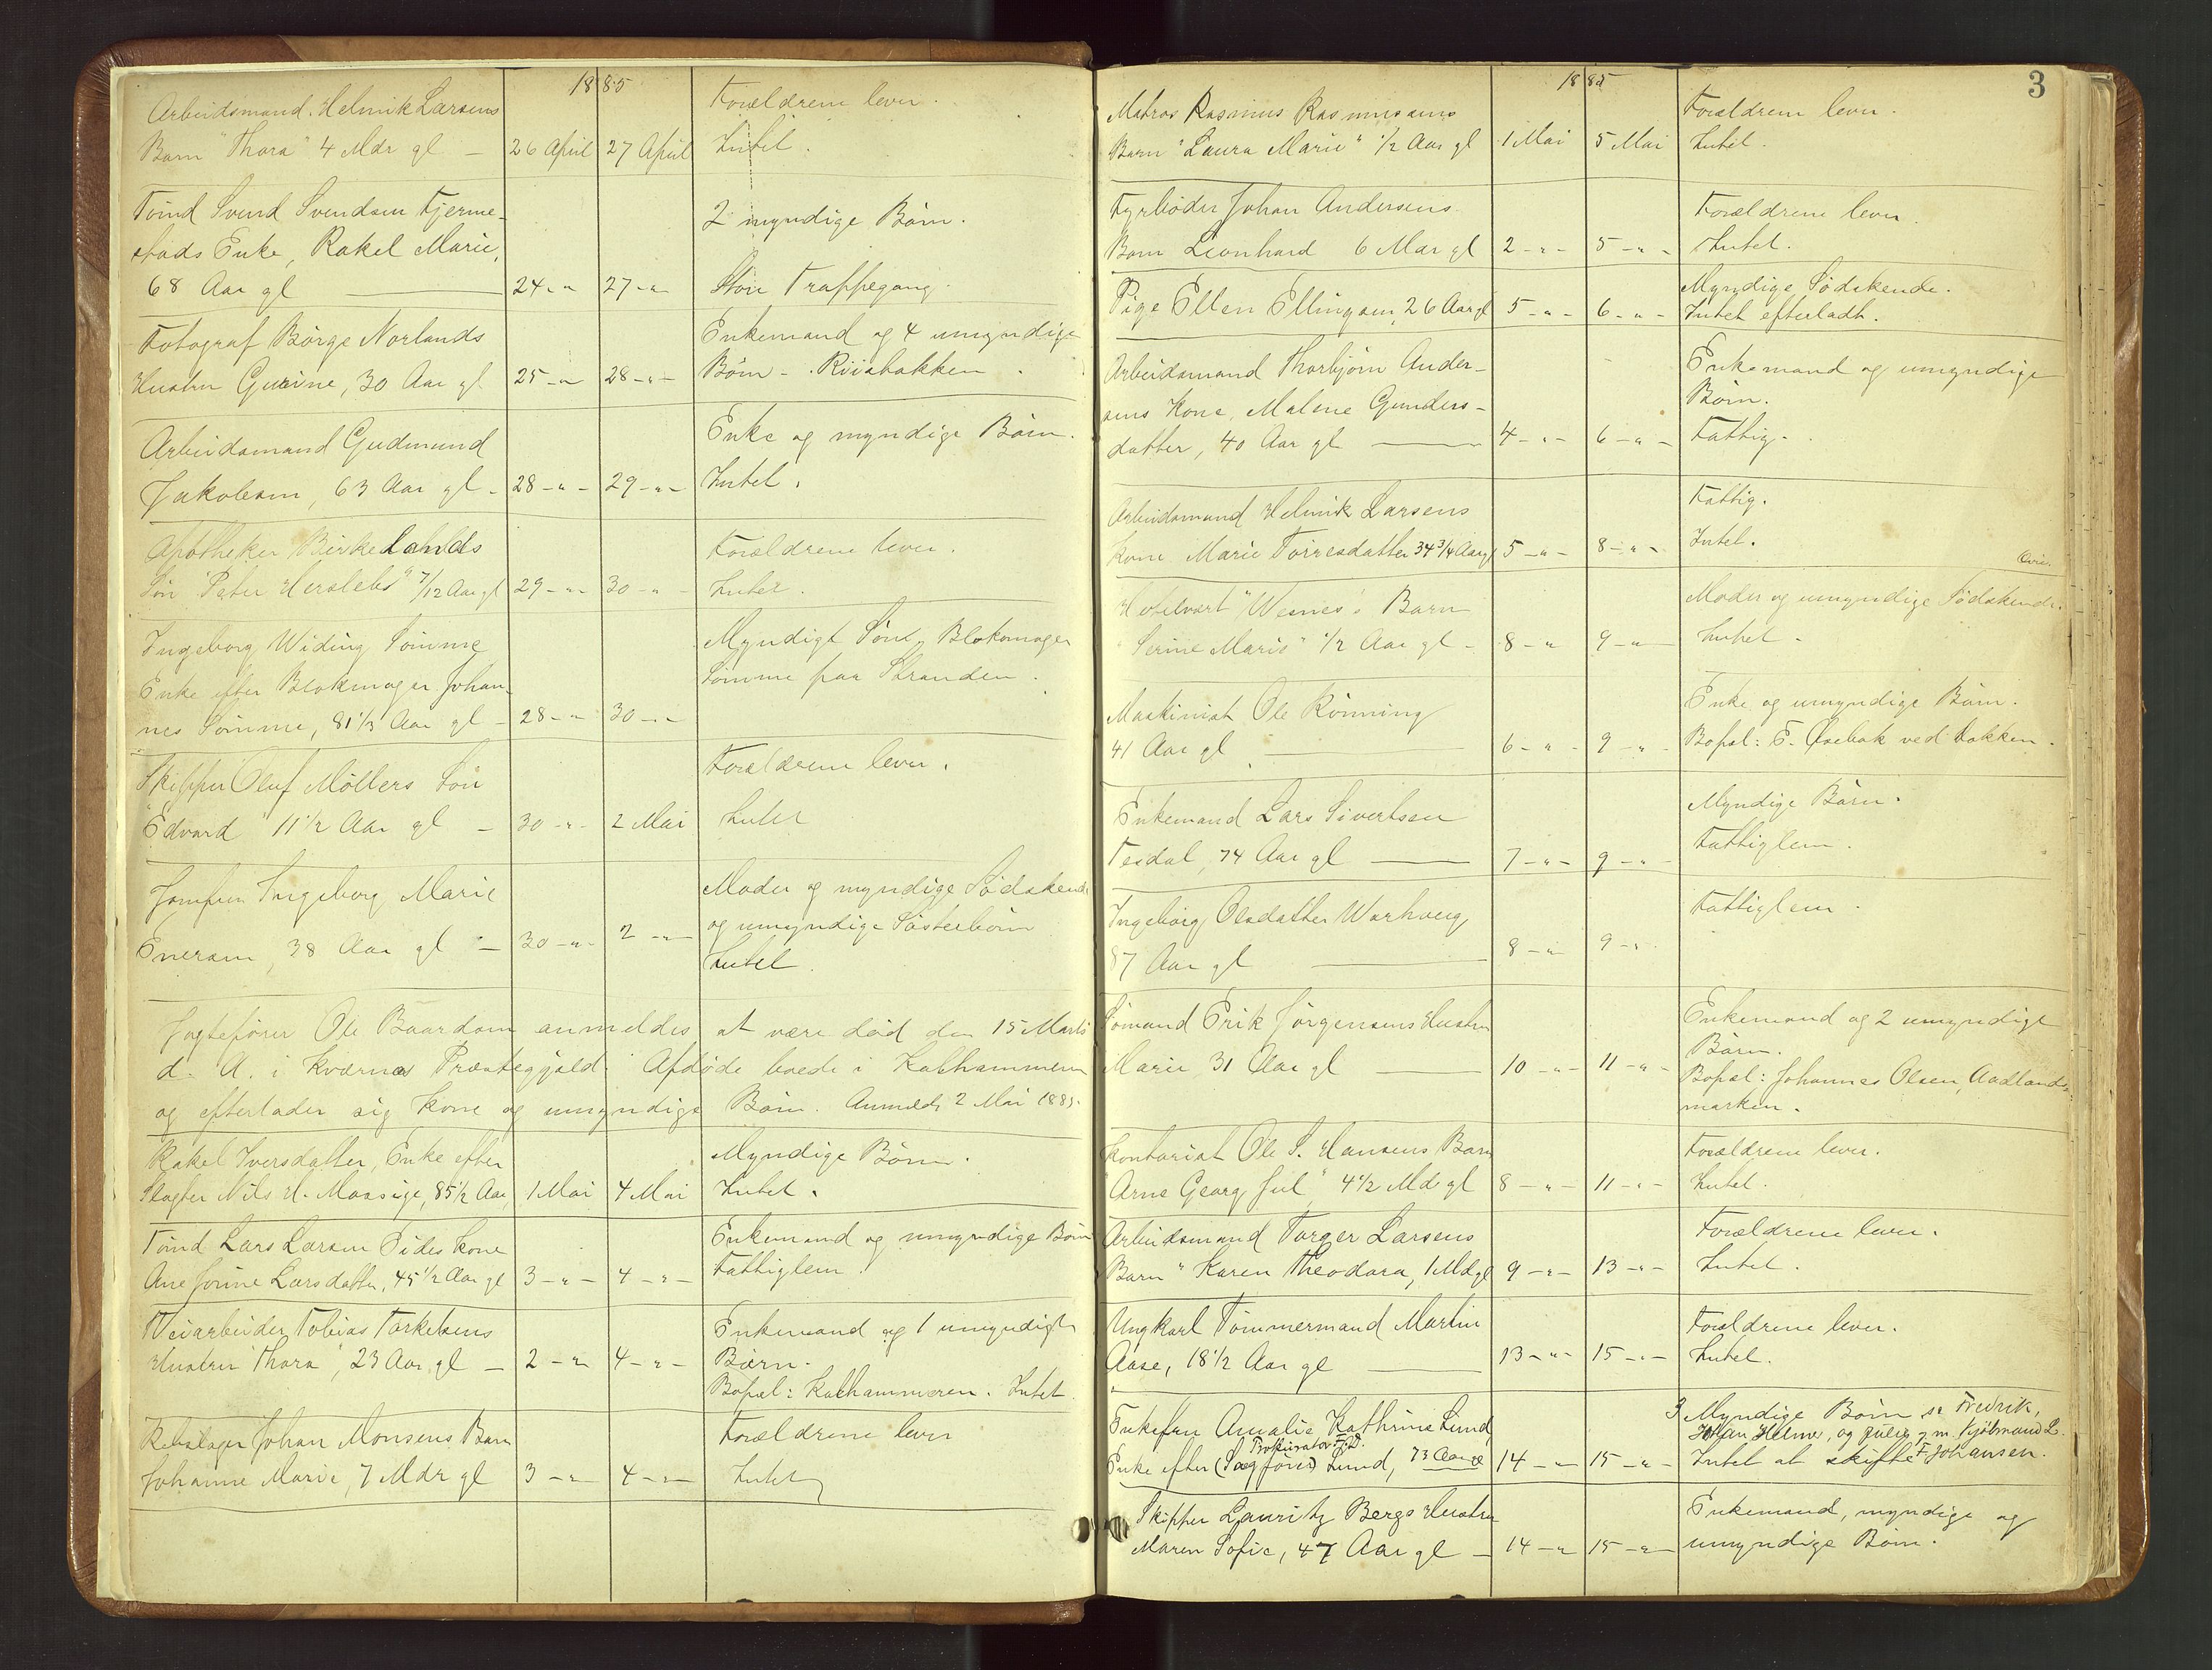 1885
Arbeidsmand Helmik Larsens
Barn "Thora" 4 Mdr gl — 26 April 27 April
Forældrene lever.
Intet.
Tømd Svend Svendsen Fjerme-
stads Enke, Rakel Marie,
68 Aar gl — 24 -"- 27 -"-
2 myndige Børn.
Store Trappegang.
Fotograf Børge Norlands
Hustru Gurine, 30 Aar gl 25 -"- 28 -"-
Enkemand og 4 umyndige
Børn - Riisbakken.
Arbeidsmand Gudmund
Jakobsen, 63 Aar gl - 28 -"- 29 -"-
Enke og myndige Børn.
Intet.
Apotheker Birkelands
Søn "Peter Herslebs" 7/12 Aar gl 29 -"- 30 -"-
Forældrene lever.
Intet.
Ingeborg Widing Sømme
Enke efter Blokmager Johan-
nes Sømme, 81 1/3 Aar gl - 28 -"- 30 -"-
Myndigt Søn, Blokmager
Sømme paa Stranden.
Skipper Oluf Møllers Søn
"Edvard" 11 1/2 Aar gl - 30 -"- 2 Mai
Forældrene lever.
Intet
Jomfru Ingeborg Marie
Enersen, 38 Aar gl - 30 -"- 2 -"-
Moder og myndige Sødskende
og umyndige Søsterbørn
Intet.
Jagtefører Ole Baardsen anmeldes at være død den 15 Marts
d. A. i Kværnes Præstegjæld. Afdøde boede i Kalhammeren
og efterlader sig Kone og umyndige Børn. Anmeldt 2 Mai 1885.
Rakel Iversdatter, Enke efter
Slagter Nils H. Maasige, 85 1/2 Aar 1 Mai 4 Mai
Myndige Børn.
Intet.
Tømd Lars Larsen Eides Kone
Ane Jorine Larsdatter, 45 1/2 Aar gl 3 -"- 4 -"-
Enkemand og umyndige Børn
Fattiglem.
Veiarbeider Tobias Torkelsens
Hustru "Thora", 23 Aar gl — 2 -"- 4 -"-
Enkemand og 1 umyndigt
Barn.
Bopæl: Kalhammeren. Intet.
Rebslager Johan Monsens Barn
Johanne Marie, 7 Mdr gl 3 -"- 4 -"-
Forældrene lever
Intet
3
1885
Matros Rasmus Rasmussens
Barn "Laura Marie" 1/2 Aar gl 1 Mai 5 Mai
Forældrene lever.
Intet.
Fyrbøder Johan Andersens
Barn Leonhard 6 Mdr gl 2 -"- 5 -"-
Forældrene lever.
Intet.
Pige Ellen Ellingsen, 26 Aar gl 5 -"- 6 -"-
Myndige Sødskende.
Intet efterladt.
Arbeidsmand Thorbjørn Ander-
sens Kone, Malene Gunders-
datter, 40 Aar gl — 4 -"- 6 -"-
Enkemand og umyndige
Børn.
Fattig.
Arbeidsmand Helmik Larsens
Kone Marie Torresdatter 34 3/4 Aar gl 5 -"- 8 -"-
Fattig.
Intet.
Hotelvært "Wesnes's Barn
Serine Marie" 1/2 Aar gl - 8 -"- 9 -"-
Moder og umyndige Sødskende.
Intet.
Maskinist Ole Rønning
41 Aar gl. — 6 -"- 9 -"-
Enke og umyndige Børn.
Bopæl: E. Øsebak ved Bakken.
Enkemand Lars Sivertsen
Tesdal, 74 Aar gl — 7 -"- 9 -"-
Myndige Børn.
Fattiglem.
Ingeborg Olsdatter Warhoug
87 Aar gl — 8 -"- 9 -"-
Fattiglem.
Sømand Erik Jørgensens Hustru
Marie, 31 Aar gl — 10 -"- 11 -"-
Enkemand og 2 umyndige
Børn.
Bopæl: Johannes Olsen, Aadlands-
marken.
Kontorist Ole S. Hansens Barn
Arne Georg Juel" 4 1/2 Mdr gl 8 -"- 11 -"-
Forældrene lever.
Intet.
Arbeidsmand Torger Larsens
Barn "Karen Theodora, 1 Md gl 9 -"- 13 -"-
Forældrene lever.
Intet.
Ungkarl Tømmermand Martin
Aase, 18 1/2 Aar gl — 13 -"- 15 -"-
Forældrene lever.
Intet.
Enkefru Amalie Kathrine Lund,
Prokurator
Enke efter (Sagfører) Lund, 73 Aar gl 14 -"- 15 -"-
3 Myndige Børn, Fredrik,
Johan Helmer, og Julie g. m. Kjøbmand L.
Intet at skifte F. Johansen.
Skipper Lauritz Bergs Hustru
Maren Sofie, 47 Aar gl — 14 -"- 15 -"-
Enkemand, myndige og
umyndige Børn.